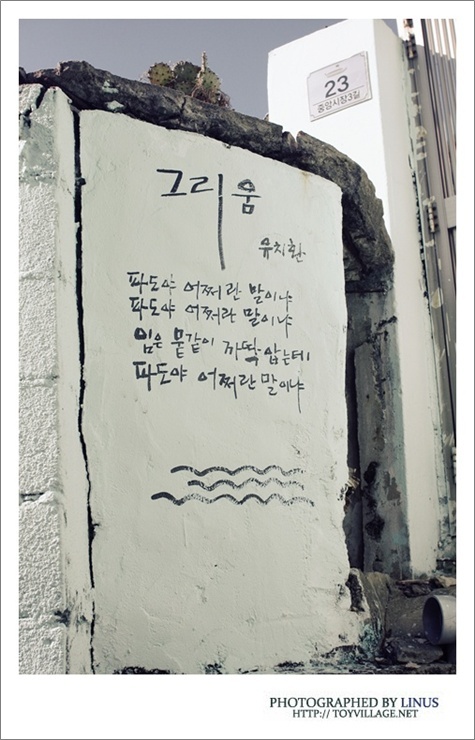 23
중앙시장3길
그리움
유치환
파도야 어쩌란 말이냐
파도야 어쩌란 말이냐
임은 뭍같이 까딱 않는데
파도야 어쩌란 말이냐
PHOTOGRAPHED BY LINUS
HTTP://TOYVILLAGE.NET